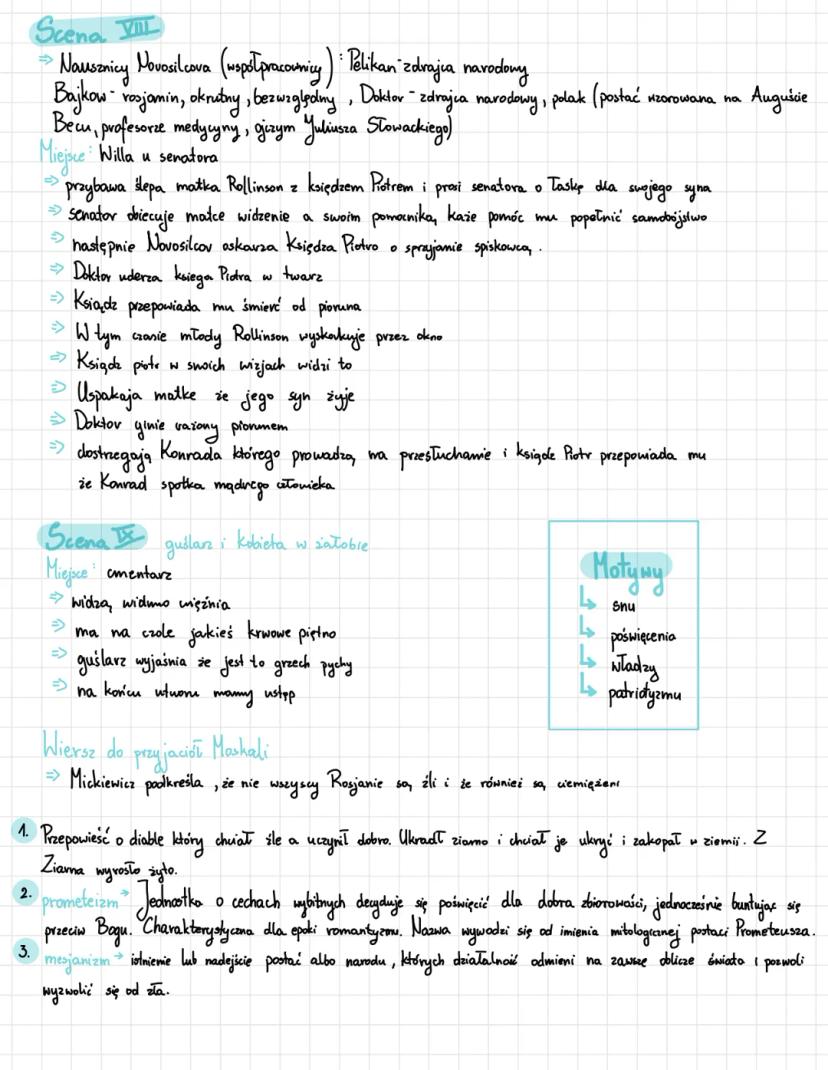 Scena VIII
⇒ Nausznicy Novosilcova (współpracownicy): Pelikan - zdrajca narodowy
Bajkow - rosjanin, okrutny, bezwzględny, Doktor - zdrajca narodowy, polak (postać wzorowana na Auguście
Becu, profesorze medycyny, ojczym Juliusza Słowackiego)
Miejsce: Willa u senatora
⇒ przybywa ślepa matka Rollinson z księdzem Piotrem i prosi senatora o łaskę dla swojego syna
⇒ senator obiecuje matce widzenie a swoim pomocniką każe pomóc mu popełnić samobójstwo
⇒ następnie Novosilcov oskarża Księdza Piotra o sprzyjanie spiskowcą.
⇒ Doktor uderza księga Piotra w twarz
⇒ Ksiądz przepowiada mu śmierć od pioruna
⇒ W tym czasie młody Rollinson wyskakuje przez okno
⇒ Ksiądz piotr w swoich wizjach widzi to
⇒ Uspakaja matke że jego syn żyje
⇒ Doktor ginie rażony piorunem
⇒ dostrzegają Konrada którego prowadzą na przesłuchanie i ksiądz Piotr przepowiada mu
że Konrad spotka mądrego człowieka
Scena IX guślarz i kobieta w żałobie
Miejsce: cmentarz
⇒ widzą widmo więźnia
⇒ ma na czole jakieś krwowe piętno
⇒ guślarz wyjaśnia że jest to grzech pychy
⇒ na końcu utworu mamy ustęp
Motywy
↳ snu
↳ poświęcenia
↳ władzy
↳ patriotyzmu
Wiersz do przyjaciół Moskali
⇒ Mickiewicz podkreśla, że nie wszyscy Rosjanie są źli i że również są ciemiężeni
1. Przepowieść o diable który chciał źle a uczynił dobro. Ukradł ziarno i chciał je ukryć i zakopał w ziemii. Z
Ziarna wyrosło żyto.
2. prometeizm → Jednostka o cechach wybitnych decyduje się poświęcić dla dobra zbiorowości, jednocześnie buntując się
przeciw Bogu. Charakterystyczna dla epoki romantyzmu. Nazwa wywodzi się od imienia mitologicznej postaci Prometeusza.
3. mesjanizm → istnienie lub nadejście postać albo narodu, których działalność odmieni na zawsze oblicze świata i pozwoli
wyzwolić się od zła.